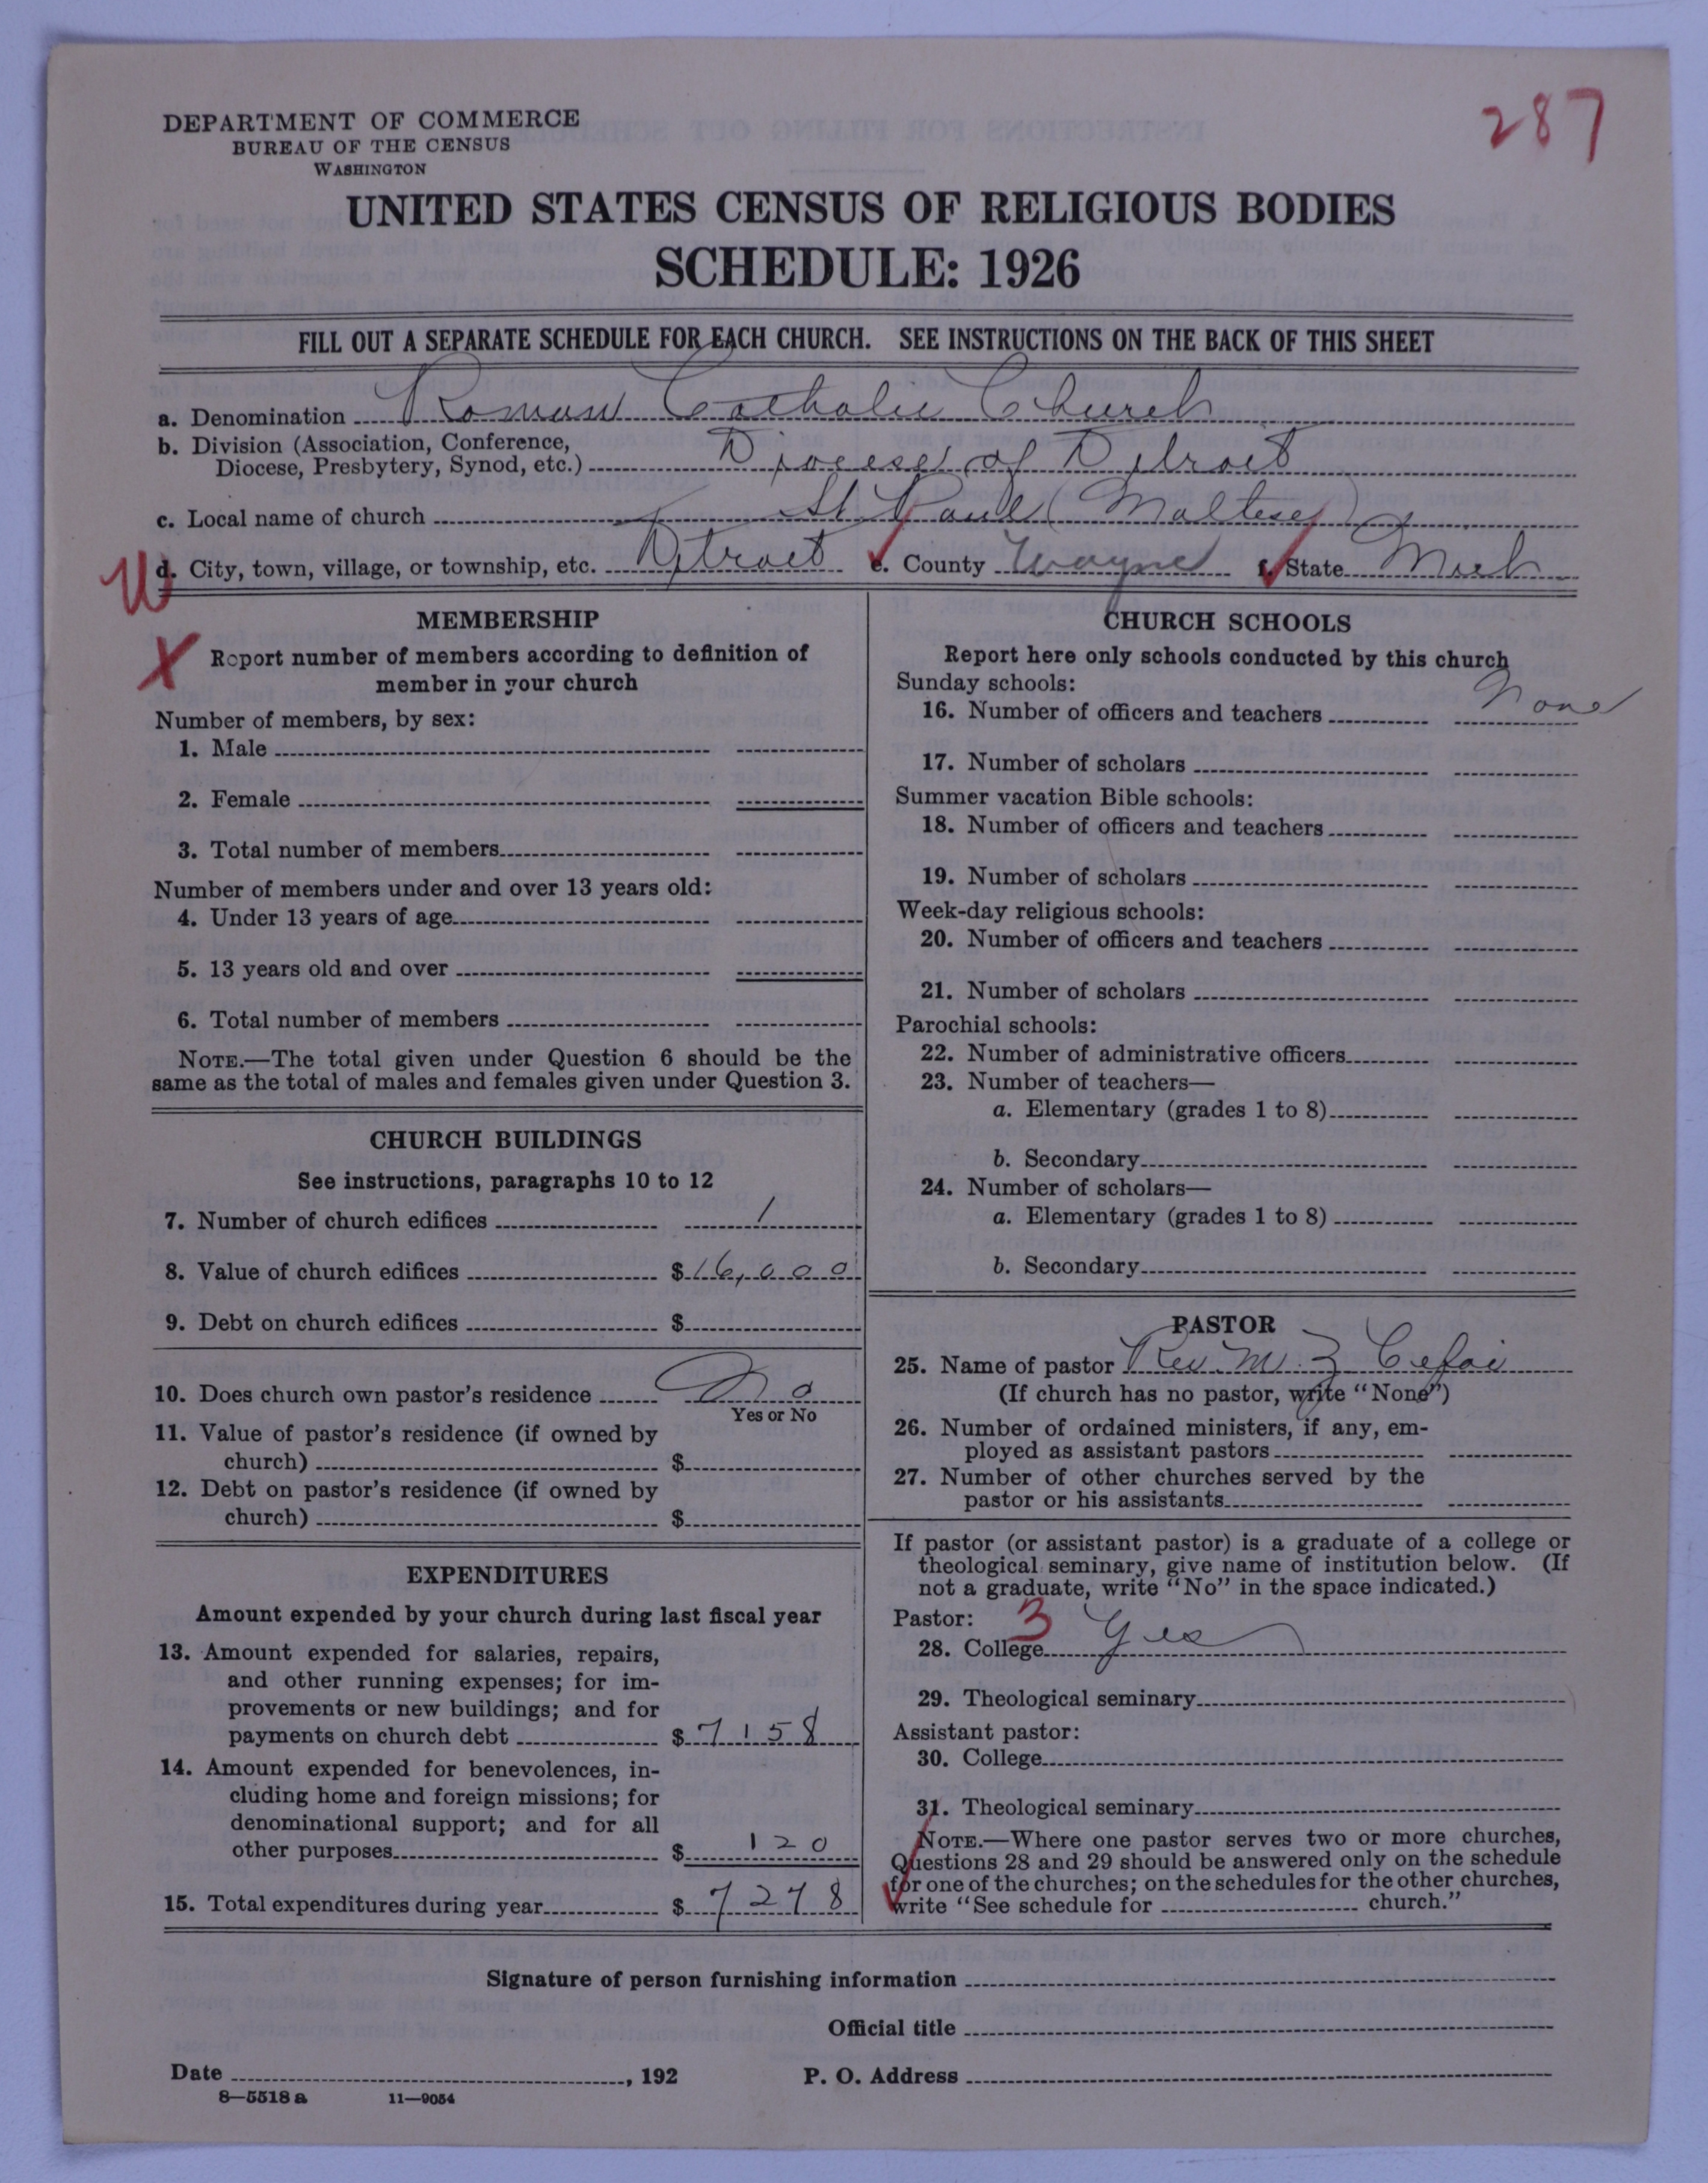 287
DEPARTMENT OF COMMERCE
BUREAU OF THE CENSUS
WASHINGTON
UNITED STATES CENSUS OF RELIGIOUS BODIES
SCHEDULE: 1926
FILL OUT A SEPARATE SCHEDULE FOR EACH CHURCH. SEE INSTRUCTIONS ON THE BACK OF THIS SHEET
a. Denomination Roman Catholic Church
b. Division (Association, Conference,
Diocese, Presbytery, Synod, etc.) Diocese of Detroit
c. Local name of church St Paul (Maltese)
d. City, town, village, or township, etc. Detroit e. County Wayne f. State Mich
W
X
MEMBERSHIP
Report number of members according to definition of
member in your church
Number of members, by sex:
1. Male
2. Female
3. Total number of members
Number of members under and over 13 years old:
4. Under 13 years of age
5. 13 years old and over
6. Total number of members
NOTE.—The total given under Question 6 should be the
same as the total of males and females given under Question 3.
CHURCH BUILDINGS
See instructions, paragraphs 10 to 12
7. Number of church edifices 1
8. Value of church edifices $16,000
9. Debt on church edifices $
10. Does church own pastor's residence No
Yes or No
11. Value of pastor's residence (if owned by
church) $
12. Debt on pastor's residence (if owned by
church) $
EXPENDITURES
Amount expended by your church during last fiscal year
13. Amount expended for salaries, repairs,
and other running expenses; for im-
provements or new buildings; and for
payments on church debt $7158
14. Amount expended for benevolences, in-
cluding home and foreign missions; for
denominational support; and for all
other purposes $120
15. Total expenditures during year $7278
CHURCH SCHOOLS
Report here only schools conducted by this church
Sunday schools:
16. Number of officers and teachers None
17. Number of scholars
Summer vacation Bible schools:
18. Number of officers and teachers
19. Number of scholars
Week-day religious schools:
20. Number of officers and teachers
21. Number of scholars
Parochial schools:
22. Number of administrative officers
23. Number of teachers—
a. Elementary (grades 1 to 8)
b. Secondary
24. Number of scholars—
a. Elementary (grades 1 to 8)
b. Secondary
PASTOR
25. Name of pastor Rev. M. Z Cefai
(If church has no pastor, write "None")
26. Number of ordained ministers, if any, em-
ployed as assistant pastors
27. Number of other churches served by the
pastor or his assistants
If pastor (or assistant pastor) is a graduate of a college or
theological seminary, give name of institution below. (If
not a graduate, write "No" in the space indicated.)
Pastor: 3
28. College Yes
29. Theological seminary
Assistant pastor:
30. College
31. Theological seminary
NOTE.—Where one pastor serves two or more churches,
Questions 28 and 29 should be answered only on the schedule
for one of the churches; on the schedules for the other churches,
write "See schedule for church."
Signature of person furnishing information
Official title
Date , 192 P. O. Address
8—5518a 11—9054